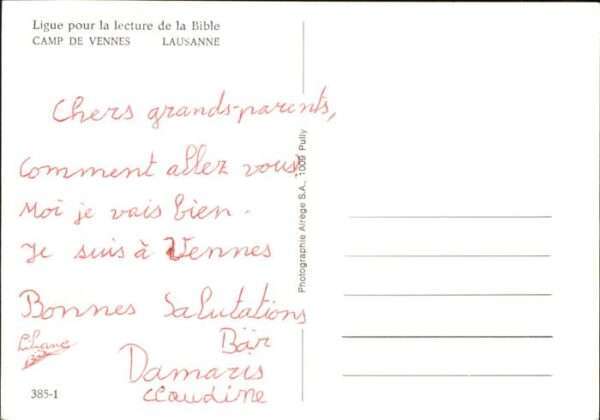 Ligue pour la lecture de la Bible
CAMP DE VENNES LAUSANNE
Chers grands-parents,
Comment allez vous?
Moi je vais bien.
Je suis à Vennes
Bonnes Salutations
Liliane
Bär
Damaris
Claudine
385-1
Photographie Airege S.A., 1009 Pully